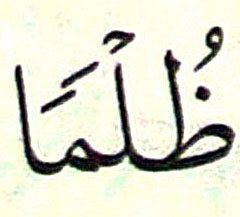 ظُلْمًا